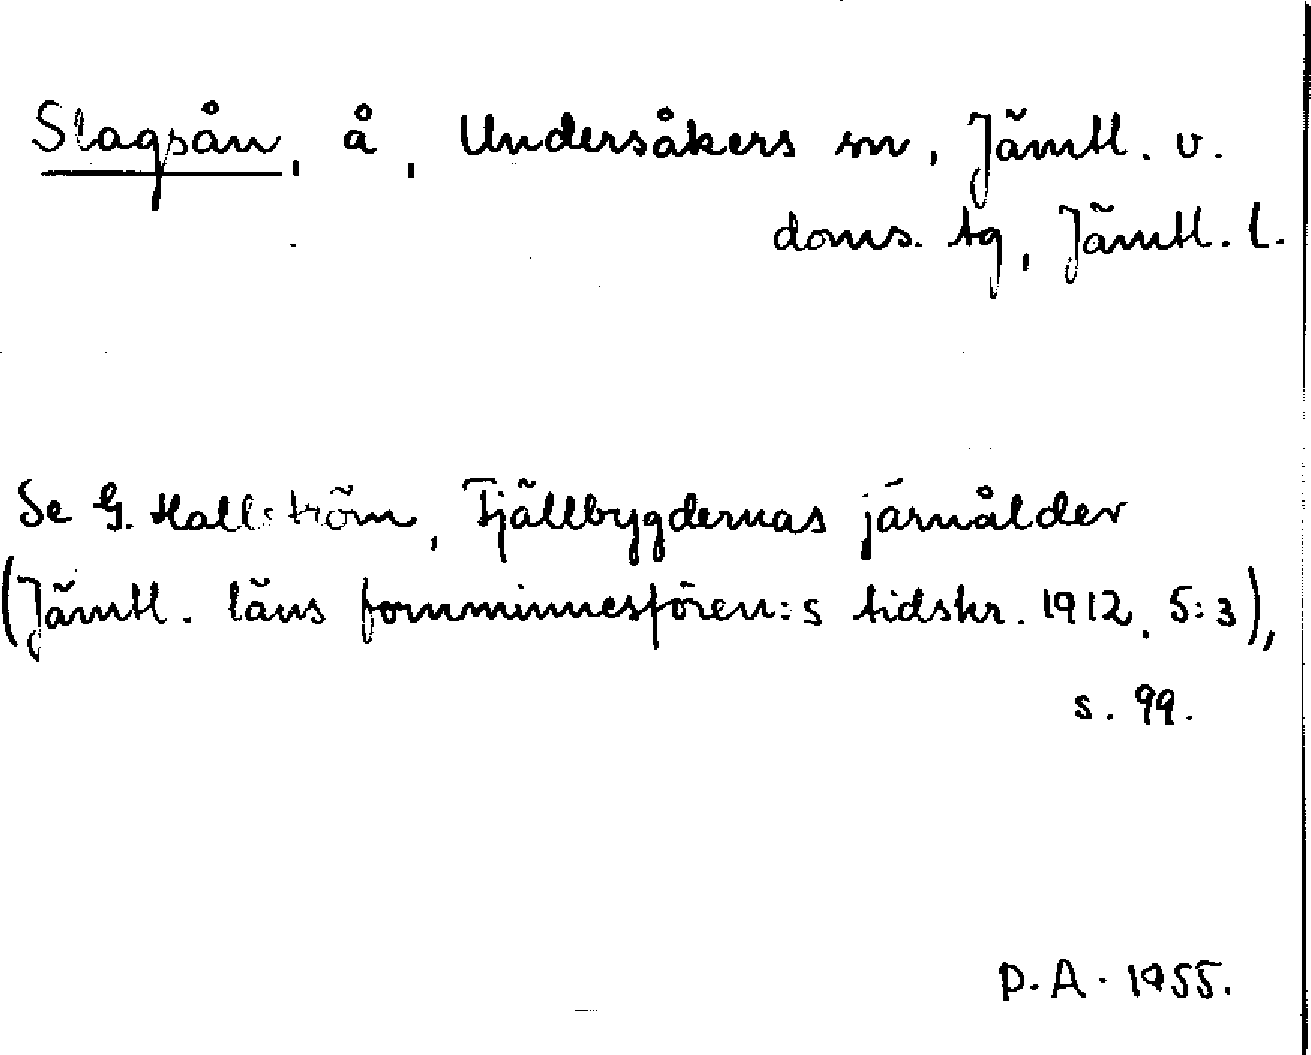 Slagsån, å, Undersåkers sn, Jämtl. v.
doms. tg, Jämtl. l.
Se G. Hallström, Fjällbygdernas järnålder
(Jämtl. läns fornminnesfören:s tidskr. 1912, 5:3),
s. 99.
P. A. 1955.